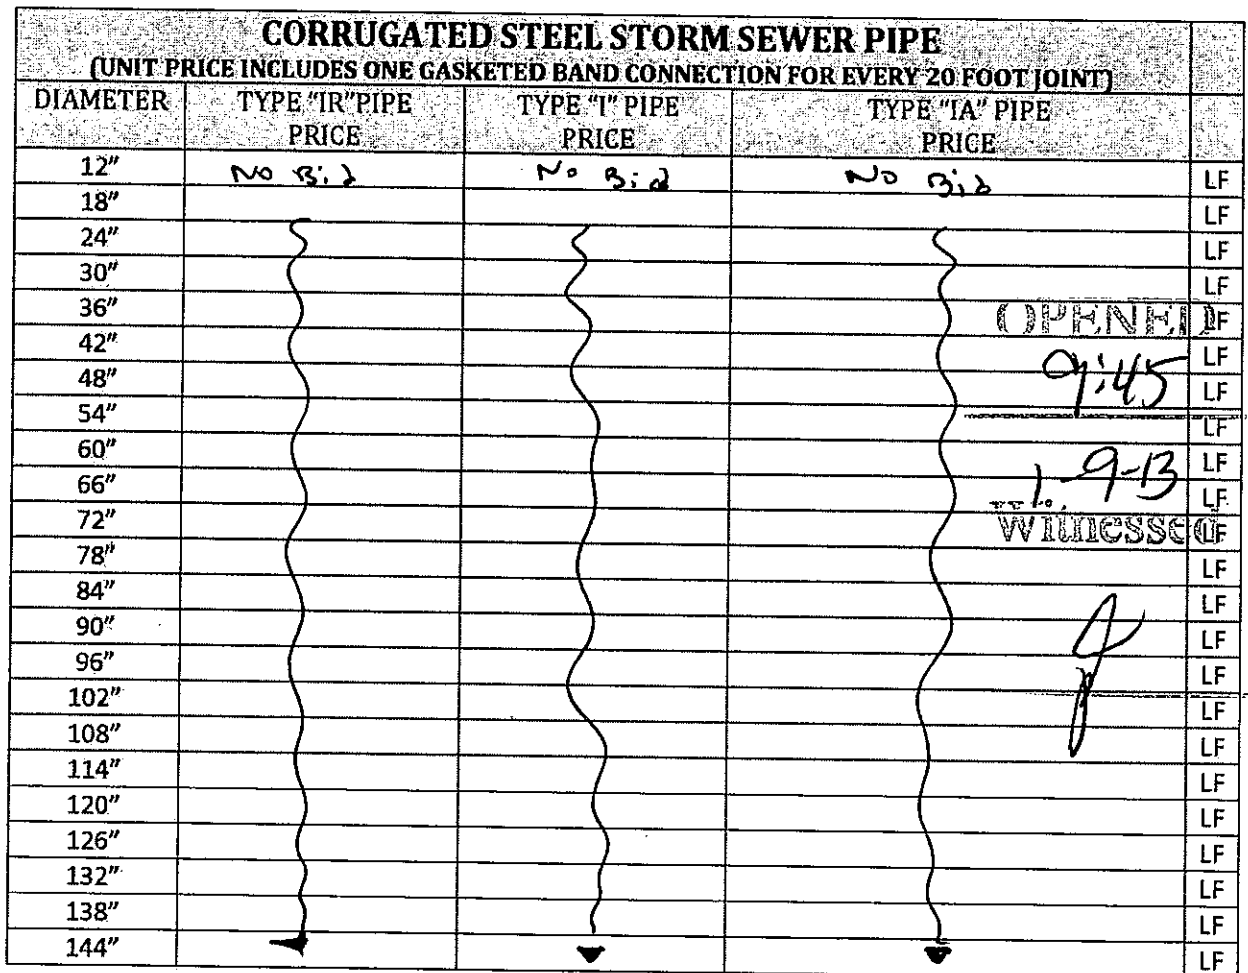 CORRUGATED STEEL STORM SEWER PIPE
(UNIT PRICE INCLUDES ONE GASKETED BAND CONNECTION FOR EVERY 20 FOOT JOINT)
DIAMETER TYPE "IR"PIPE PRICE TYPE "I" PIPE PRICE TYPE "IA" PIPE PRICE
12" No Bid No Bid No Bid LF
18" LF
24" LF
30" LF
36" OPENED LF
42" LF
48" 9:45 LF
54" LF
60" LF
66" 1-9-13 LF
72" Witnessed LF
78" LF
84" LF
90" LF
96" LF
102" LF
108" LF
114" LF
120" LF
126" LF
132" LF
138" LF
144" LF